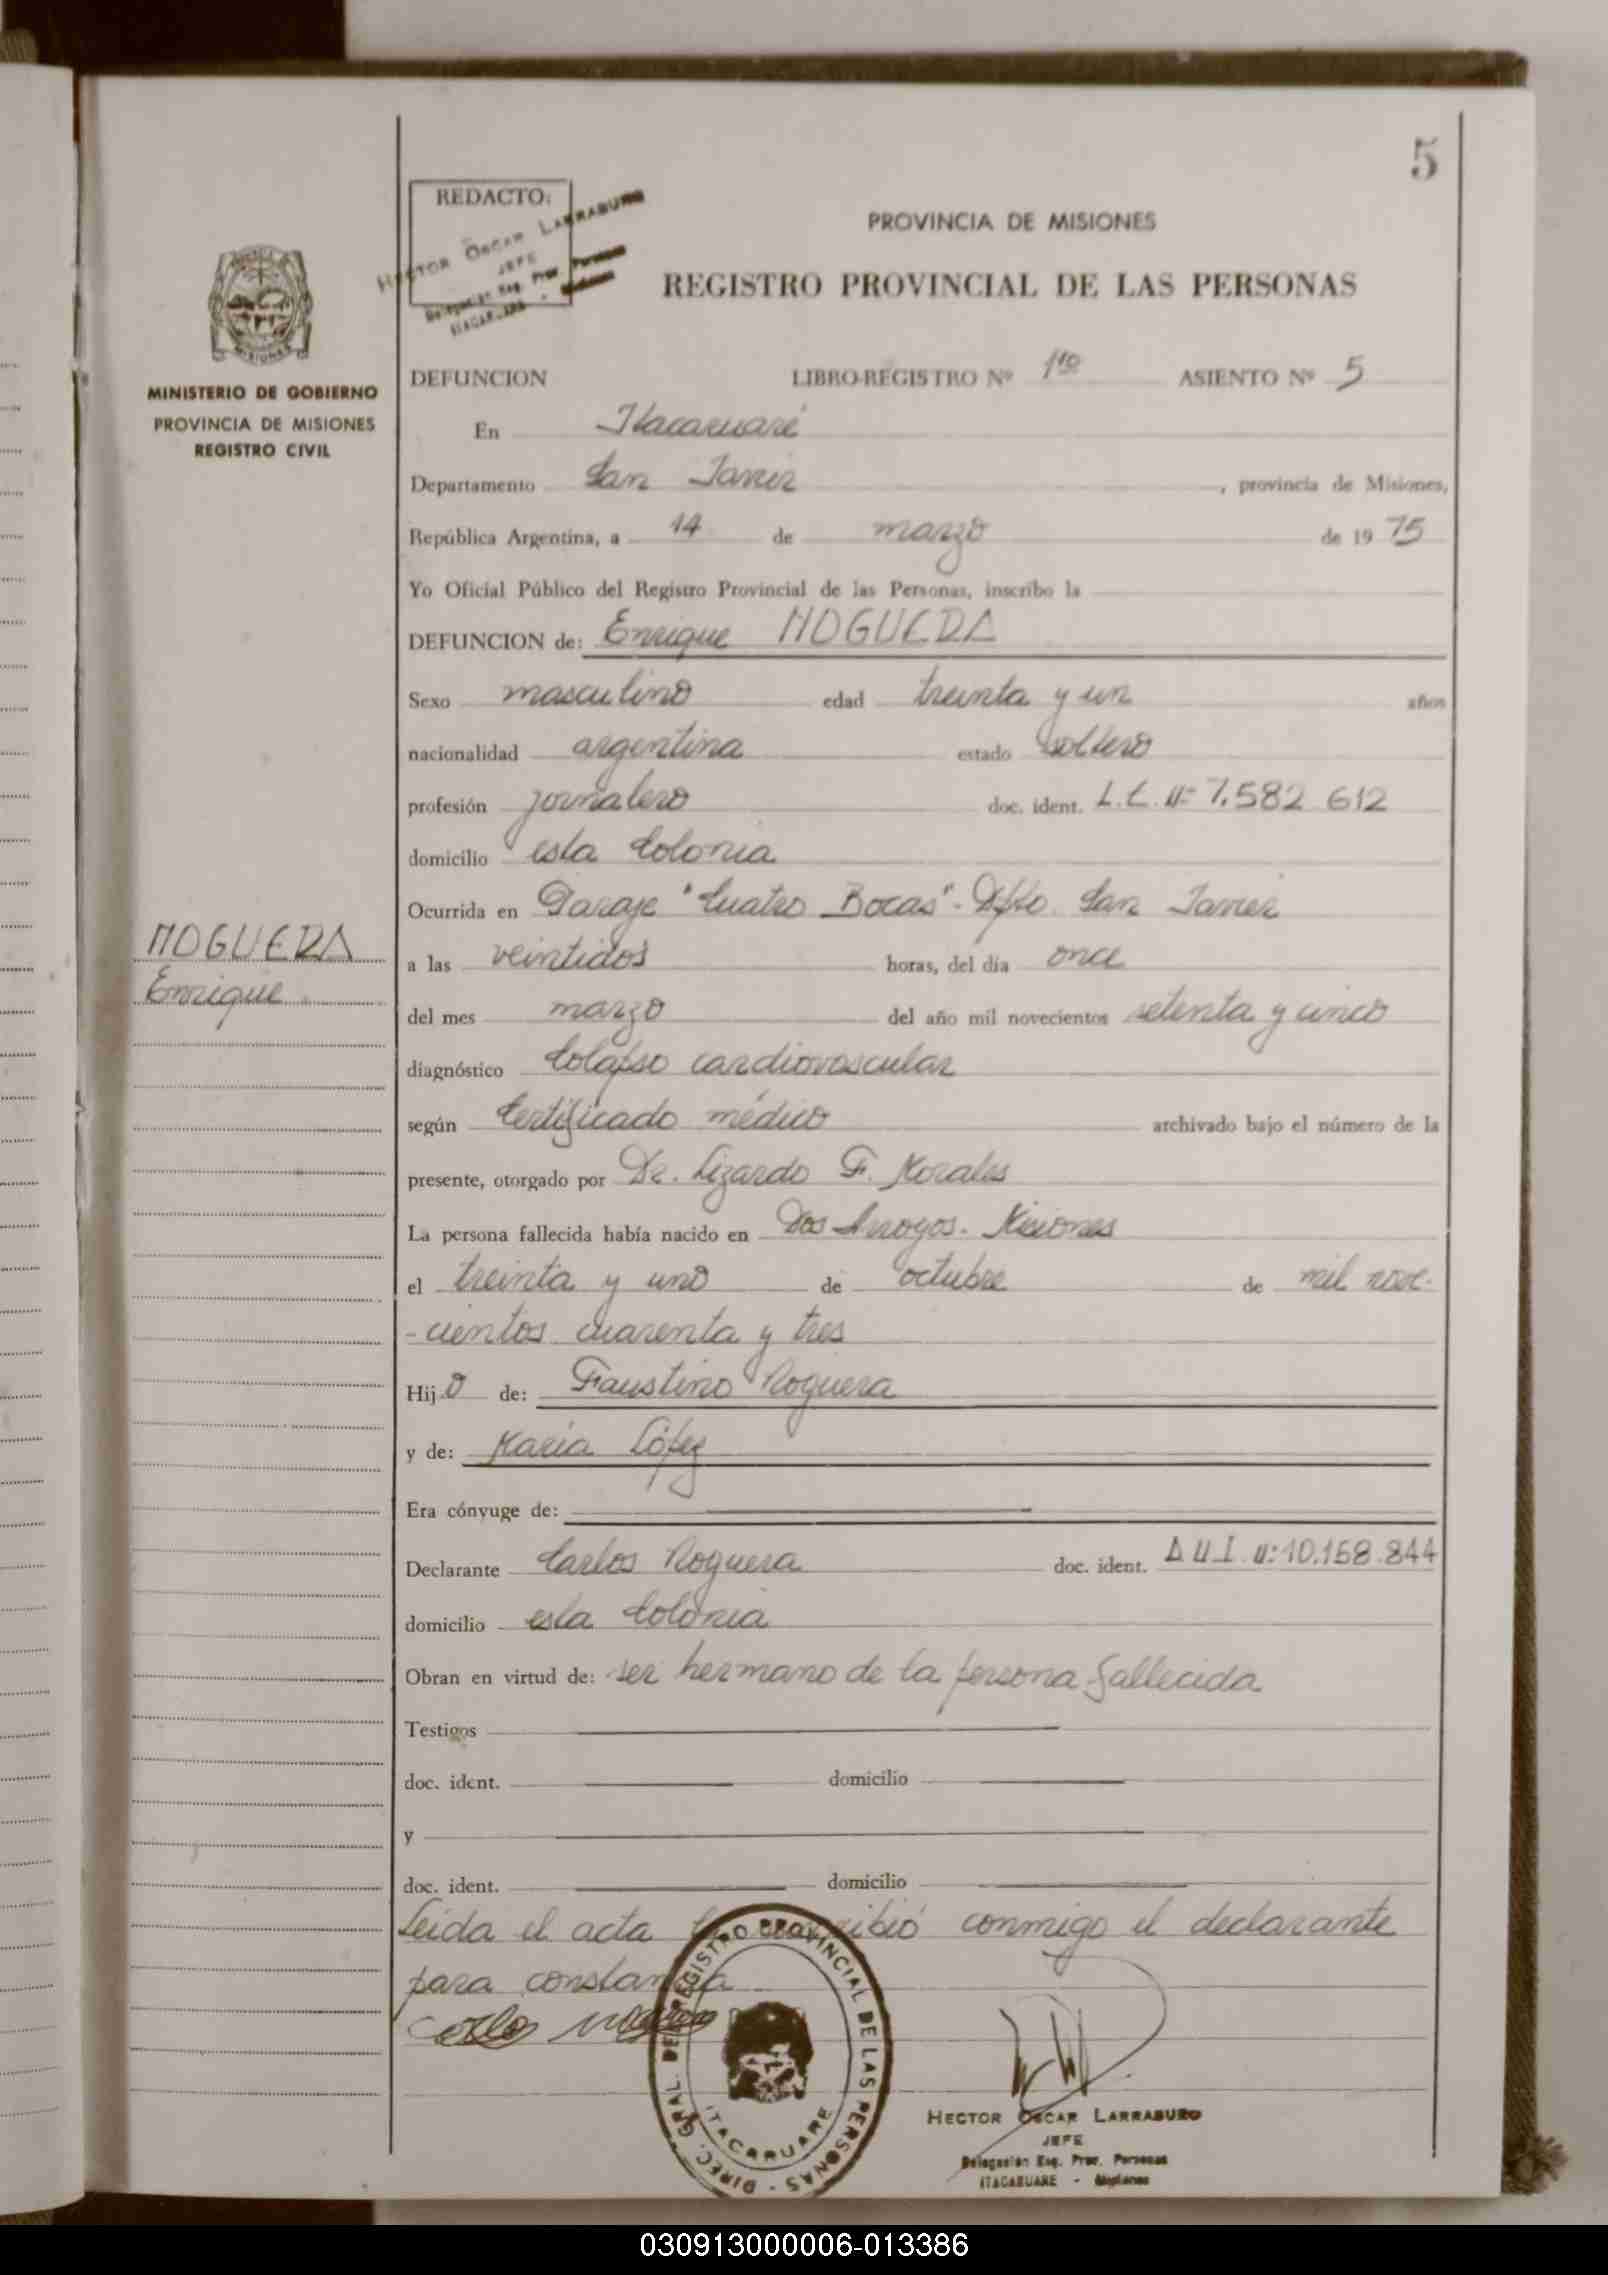 5
REDACTO:
HECTOR OSCAR LARRABURO
JEFE
Delegación Reg. Prov. Personas
ITACARUARE - Misiones
PROVINCIA DE MISIONES
REGISTRO PROVINCIAL DE LAS PERSONAS
MISIONES
MINISTERIO DE GOBIERNO
PROVINCIA DE MISIONES
REGISTRO CIVIL
DEFUNCION LIBRO-REGISTRO Nº 1ro ASIENTO Nº 5
En Itacaruaré
Departamento San Javier, provincia de Misiones,
República Argentina, a 14 de marzo de 1975
Yo Oficial Público del Registro Provincial de las Personas, inscribo la
DEFUNCION de: Enrique NOGUERA
Sexo masculino edad treinta y un años
nacionalidad argentina estado soltero
profesión jornalero doc. ident. L.E. Nº 7.582.612
domicilio esta Colonia
Ocurrida en Paraje "Cuatro Bocas"- Dpto. San Javier
NOGUERA
Enrique
a las veintidos horas, del día once
del mes marzo del año mil novecientos setenta y cinco
diagnóstico Colapso cardiovascular
según Certificado médico archivado bajo el número de la
presente, otorgado por Dr. Lizardo F. Morales
La persona fallecida había nacido en Dos Arroyos- Misiones
el treinta y uno de octubre de mil nove-
-cientos cuarenta y tres
Hijo de: Faustino Noguera
y de: María López
Era cónyuge de:
Declarante Carlos Noguera doc. ident. D.N.I. Nº 10.158.844
domicilio esta Colonia
Obran en virtud de: ser hermano de la persona fallecida
Testigos
doc. ident. domicilio
y
doc. ident. domicilio
Leída el acta conmigo el declarante
para constancia
DIREC. GRAL. DEL REGISTRO PROVINCIAL DE LAS PERSONAS -
ITACARUARE
HECTOR OSCAR LARRABURO
JEFE
Delegación Reg. Prov. Personas
ITACARUARE - Misiones
030913000006-013386